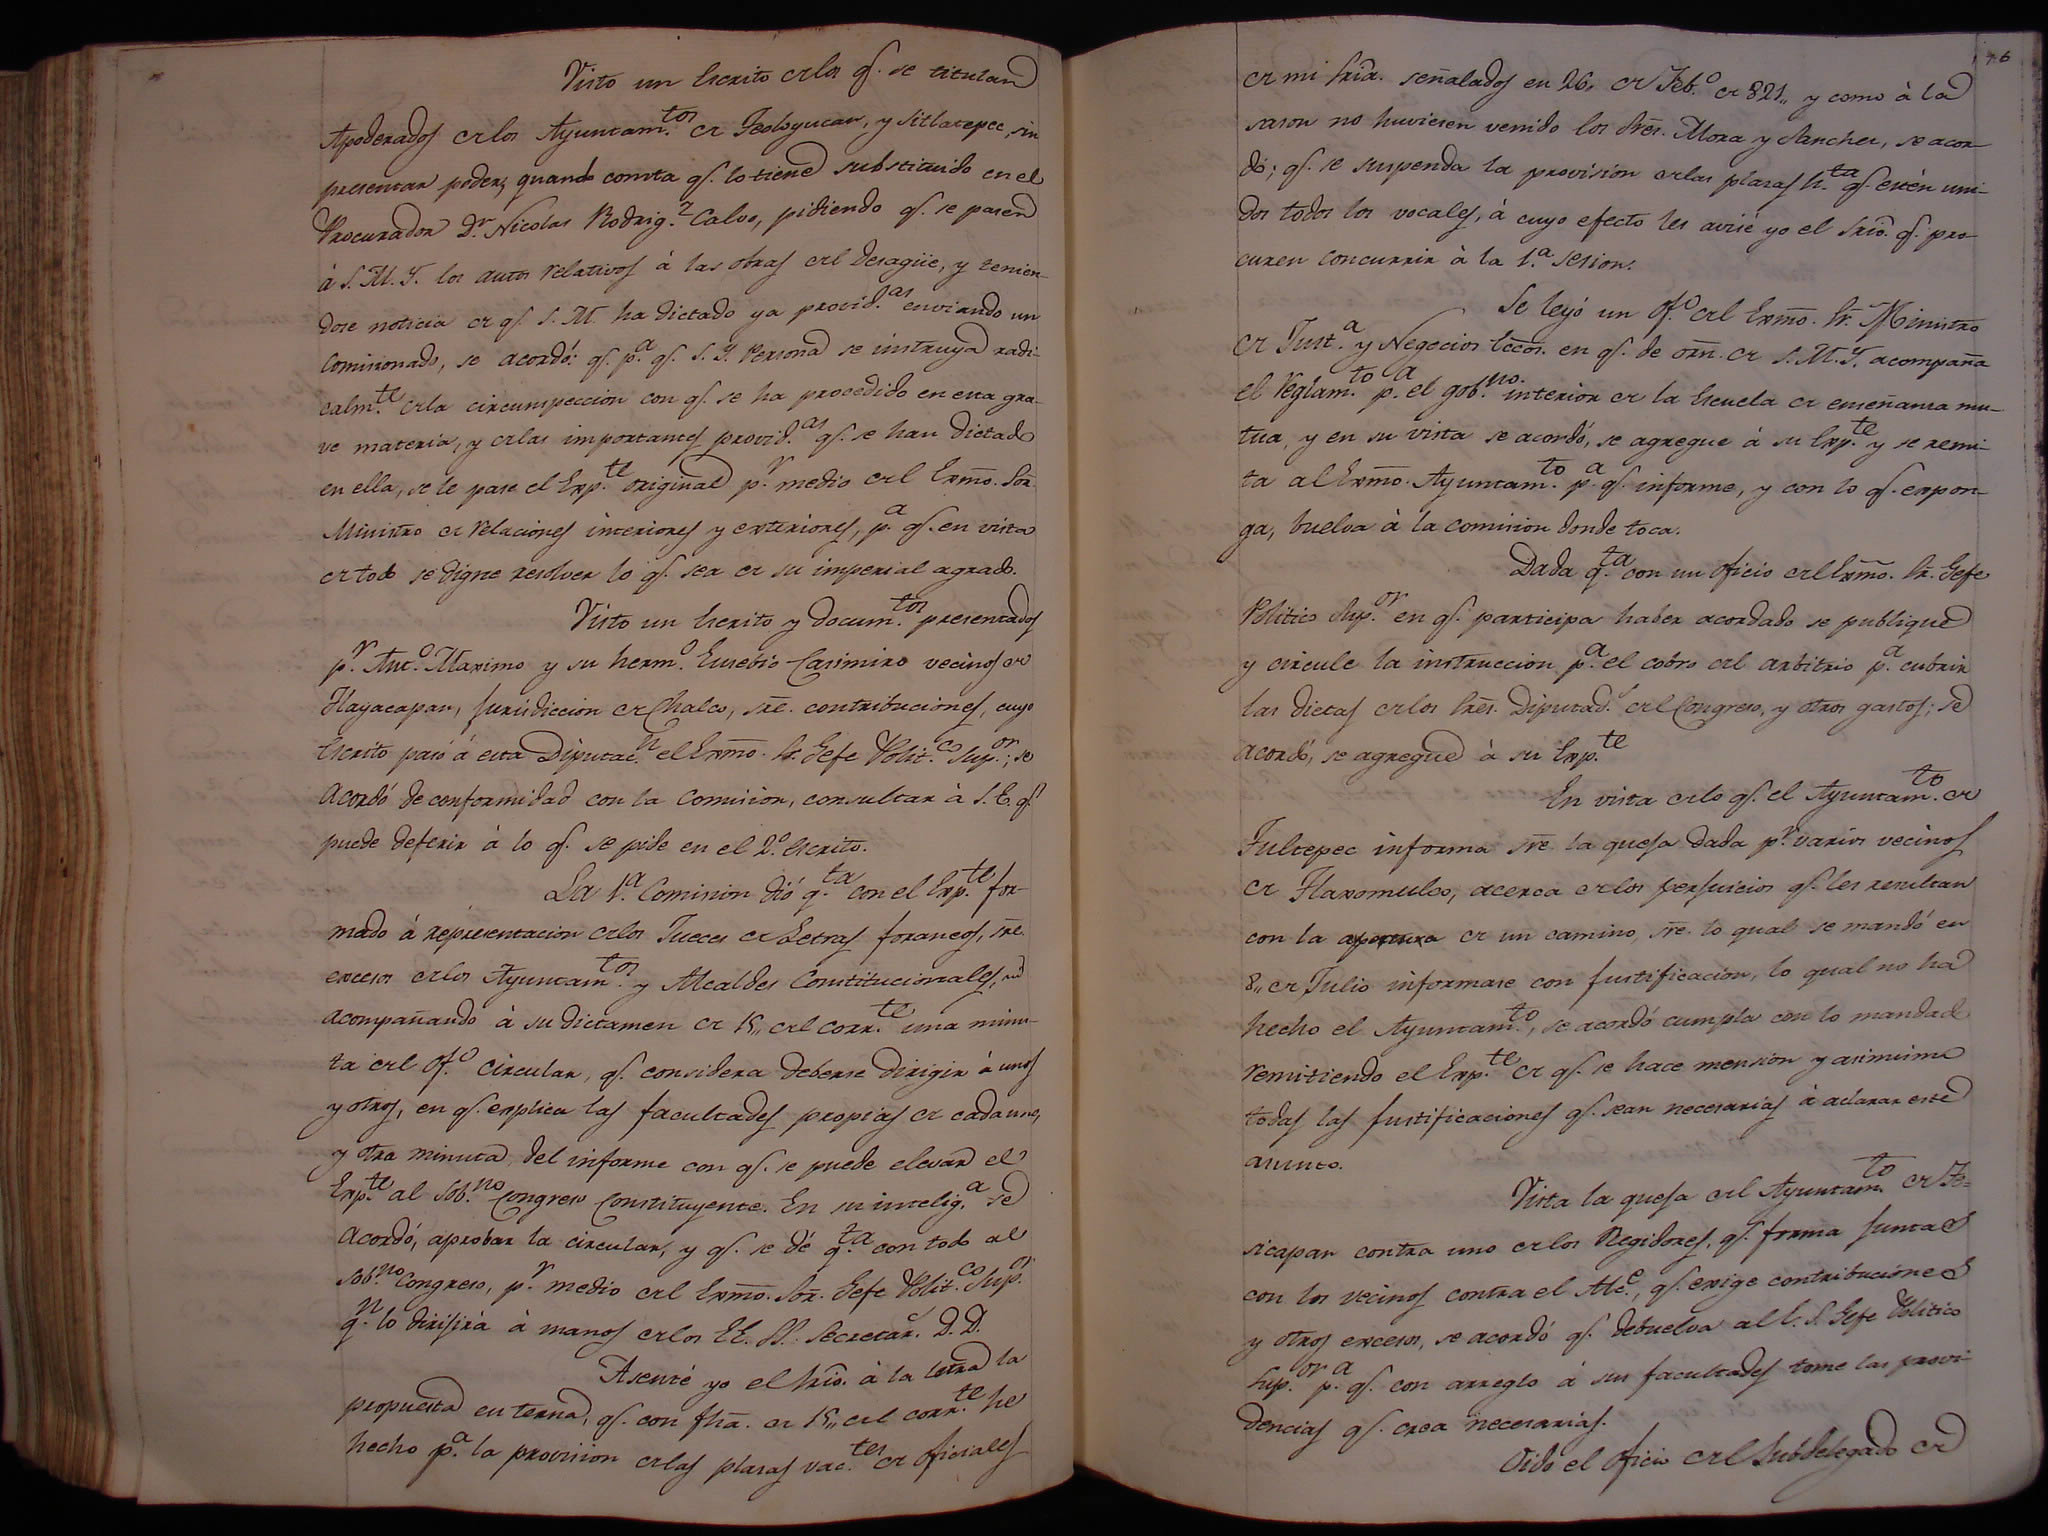 Visto un escrito de los q.e se titulan
Apoderados de los Ayuntam.tos de Teoloyucan, y Sitlatepec, sin
presentar poder, quando consta q.e lo tiene substituido en el
Procurador D.n Nicolas Rodrig.z Calvo, pidiendo q.e se pasen
à S. M. Y. los autos relativos à las obras del Desagüe, y tenien-
dose noticia de q.e S. M. ha dictado ya provid.as enviando un
Comisionado, se acordó: q.e p.a q.e S. Y. Persona se instruya radi-
calm.te de la circunspeccion con q.e se ha procedido en esta gra-
ve materia, y de las importantes provid.as q.e se han dictado
en ella, se le pase el Exp.te original p.r medio del Exmo. Sor.
Ministro de relaciones interiores y exteriores, p.a q.e en vista
de todo se digne resolver lo q.e sea de su imperial agrado.
Visto un escrito y docum.tos presentados
p.r Ant.o Maximo y su herm.o Eusebio Casimiro vecinos de
Tlayacapan, jurisdiccion de Chalco, sre. contribuciones, cuyo
escrito pasó á esta Diputac.n el Exmo. Sr. Gefe Polit.co Sup.or; se
acordó de conformidad con la Comision, consultar à S. E. q.e
puede deferir à lo q.e se pide en el 2.o escrito.
La 1.a Comision dió q.ta con el Exp.te for-
mado á representacion de los Jueces de Letras foraneos, sre.
excesos de los Ayuntam.tos y Alcaldes Constitucionales,
acompañando à su dictamen de 15,, del corr.te una minu-
ta del of.o circular, q.e considera deberse dirigir à unos
y otros, en q.e explica las facultades propias de cada uno,
y otra minuta del informe con q.e se puede elevar el
Exp.te al Sob.no Congreso Constituyente. En su intelig.a se
acordó, aprobar la circular, y q.e se dé q.ta con todo al
Sob.no Congreso, p.r medio del Exmo. Sor. Gefe Polit.co Sup.or
q.n lo dirijirá à manos de los EE. SS. Secretar.s D. D.
Asenté yo el Srio. à la letra la
propuesta en terna, q.e con fha. de 15,, del corr.te he
hecho p.a la provision de las plasas vac.tes de oficiales
176
de mi Sria. señalados en 26, de Feb.o de 821,, y como à la
sason no huviesen venido los Sres. Mora y Sanchez, se acor-
dó; q.e se suspenda la provision de las plasas h.ta q.e estén uni-
dos todos los vocales, à cuyo efecto les avise yo el Srio. q.e pro-
curen concurrir à la 1.a sesion.
Se leyó un of.o del Exmo. Sr. Ministro
de Just.a y Negocios Eccos. en q.e de orn. de S. M. Y. acompaña
el Reglam.to p.a el gob.no interior de la escuela de enseñansa mu-
tua, y en su vista se acordó, se agregue á su Exp.te y se remi-
ta al Exmo. Ayuntam.to p.a q.e informe, y con lo q.e expon-
ga, buelva à la comision donde toca.
Dada q.ta con un oficio del Exmo. Sr. Gefe
Politico Sup.or en q.e participa haber acordado se publique
y circule la instruccion p.a el cobro del arbitrio p.a cubrir
las dietas de los Sres. Diputad.s del Congreso, y otros gastos; se
acordó, se agregue à su Exp.te
En vista de lo q.e el Ayuntam.to de
Jultepec informa sre. la queja dada p.r varios vecinos
de Tlaxomulco, acerca de los perjuicios q.e les resultan
con la apertura de un camino, sre. lo qual se mandó en
8,, de Julio informase con justificacion, lo qual no ha
hecho el Ayuntam.to, se acordó cumpla con lo mandado
remitiendo el Exp.te de q.e se hace mension y asimismo
todas las justificaciones q.e sean necesarias à aclarar este
asunto.
Vista la queja del Ayuntam.to de Te=
sicapan contra uno de los Regidores, q.e forma juntas
con los vecinos contra el Alc.e, q.e exige contribuciones
y otros excesos, se acordó q.e debuelva al E. S. Gefe Politico
Sup.or p.a q.e con arreglo á sus facultades tome las provi-
dencias q.e crea necesarias.
Oido el oficio del Subdelegado de